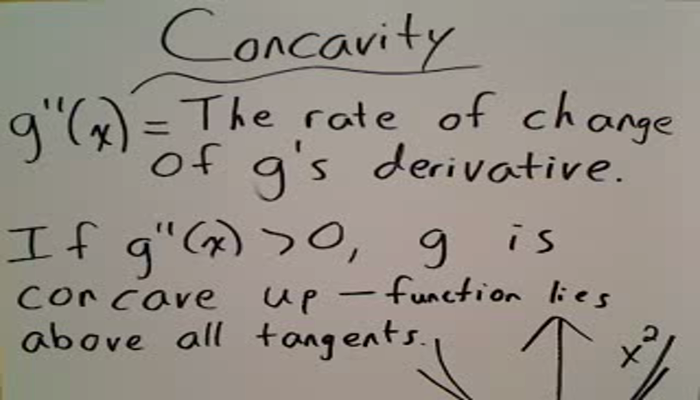 Concavity
g''(x) = The rate of change
of g's derivative.
If g''(x) > 0, g is
concave up — function lies
above all tangents.
x²